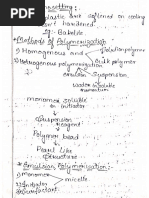 setting:
plastic but softened on cooling
isn't hardened.
eg: Bakelite
Methods of Polymerisation:
Homogeneous and
Solution polymer
Bulk polymer
Homogenous polymerization
emulsion Suspension
water
soluble
monomer
monomer soluble
in initiator
Suspension
reagent
Polymer bead
Pearl like
structure
Emulsion Polymerisation:
monomer
micelle
initiator
Surfactant